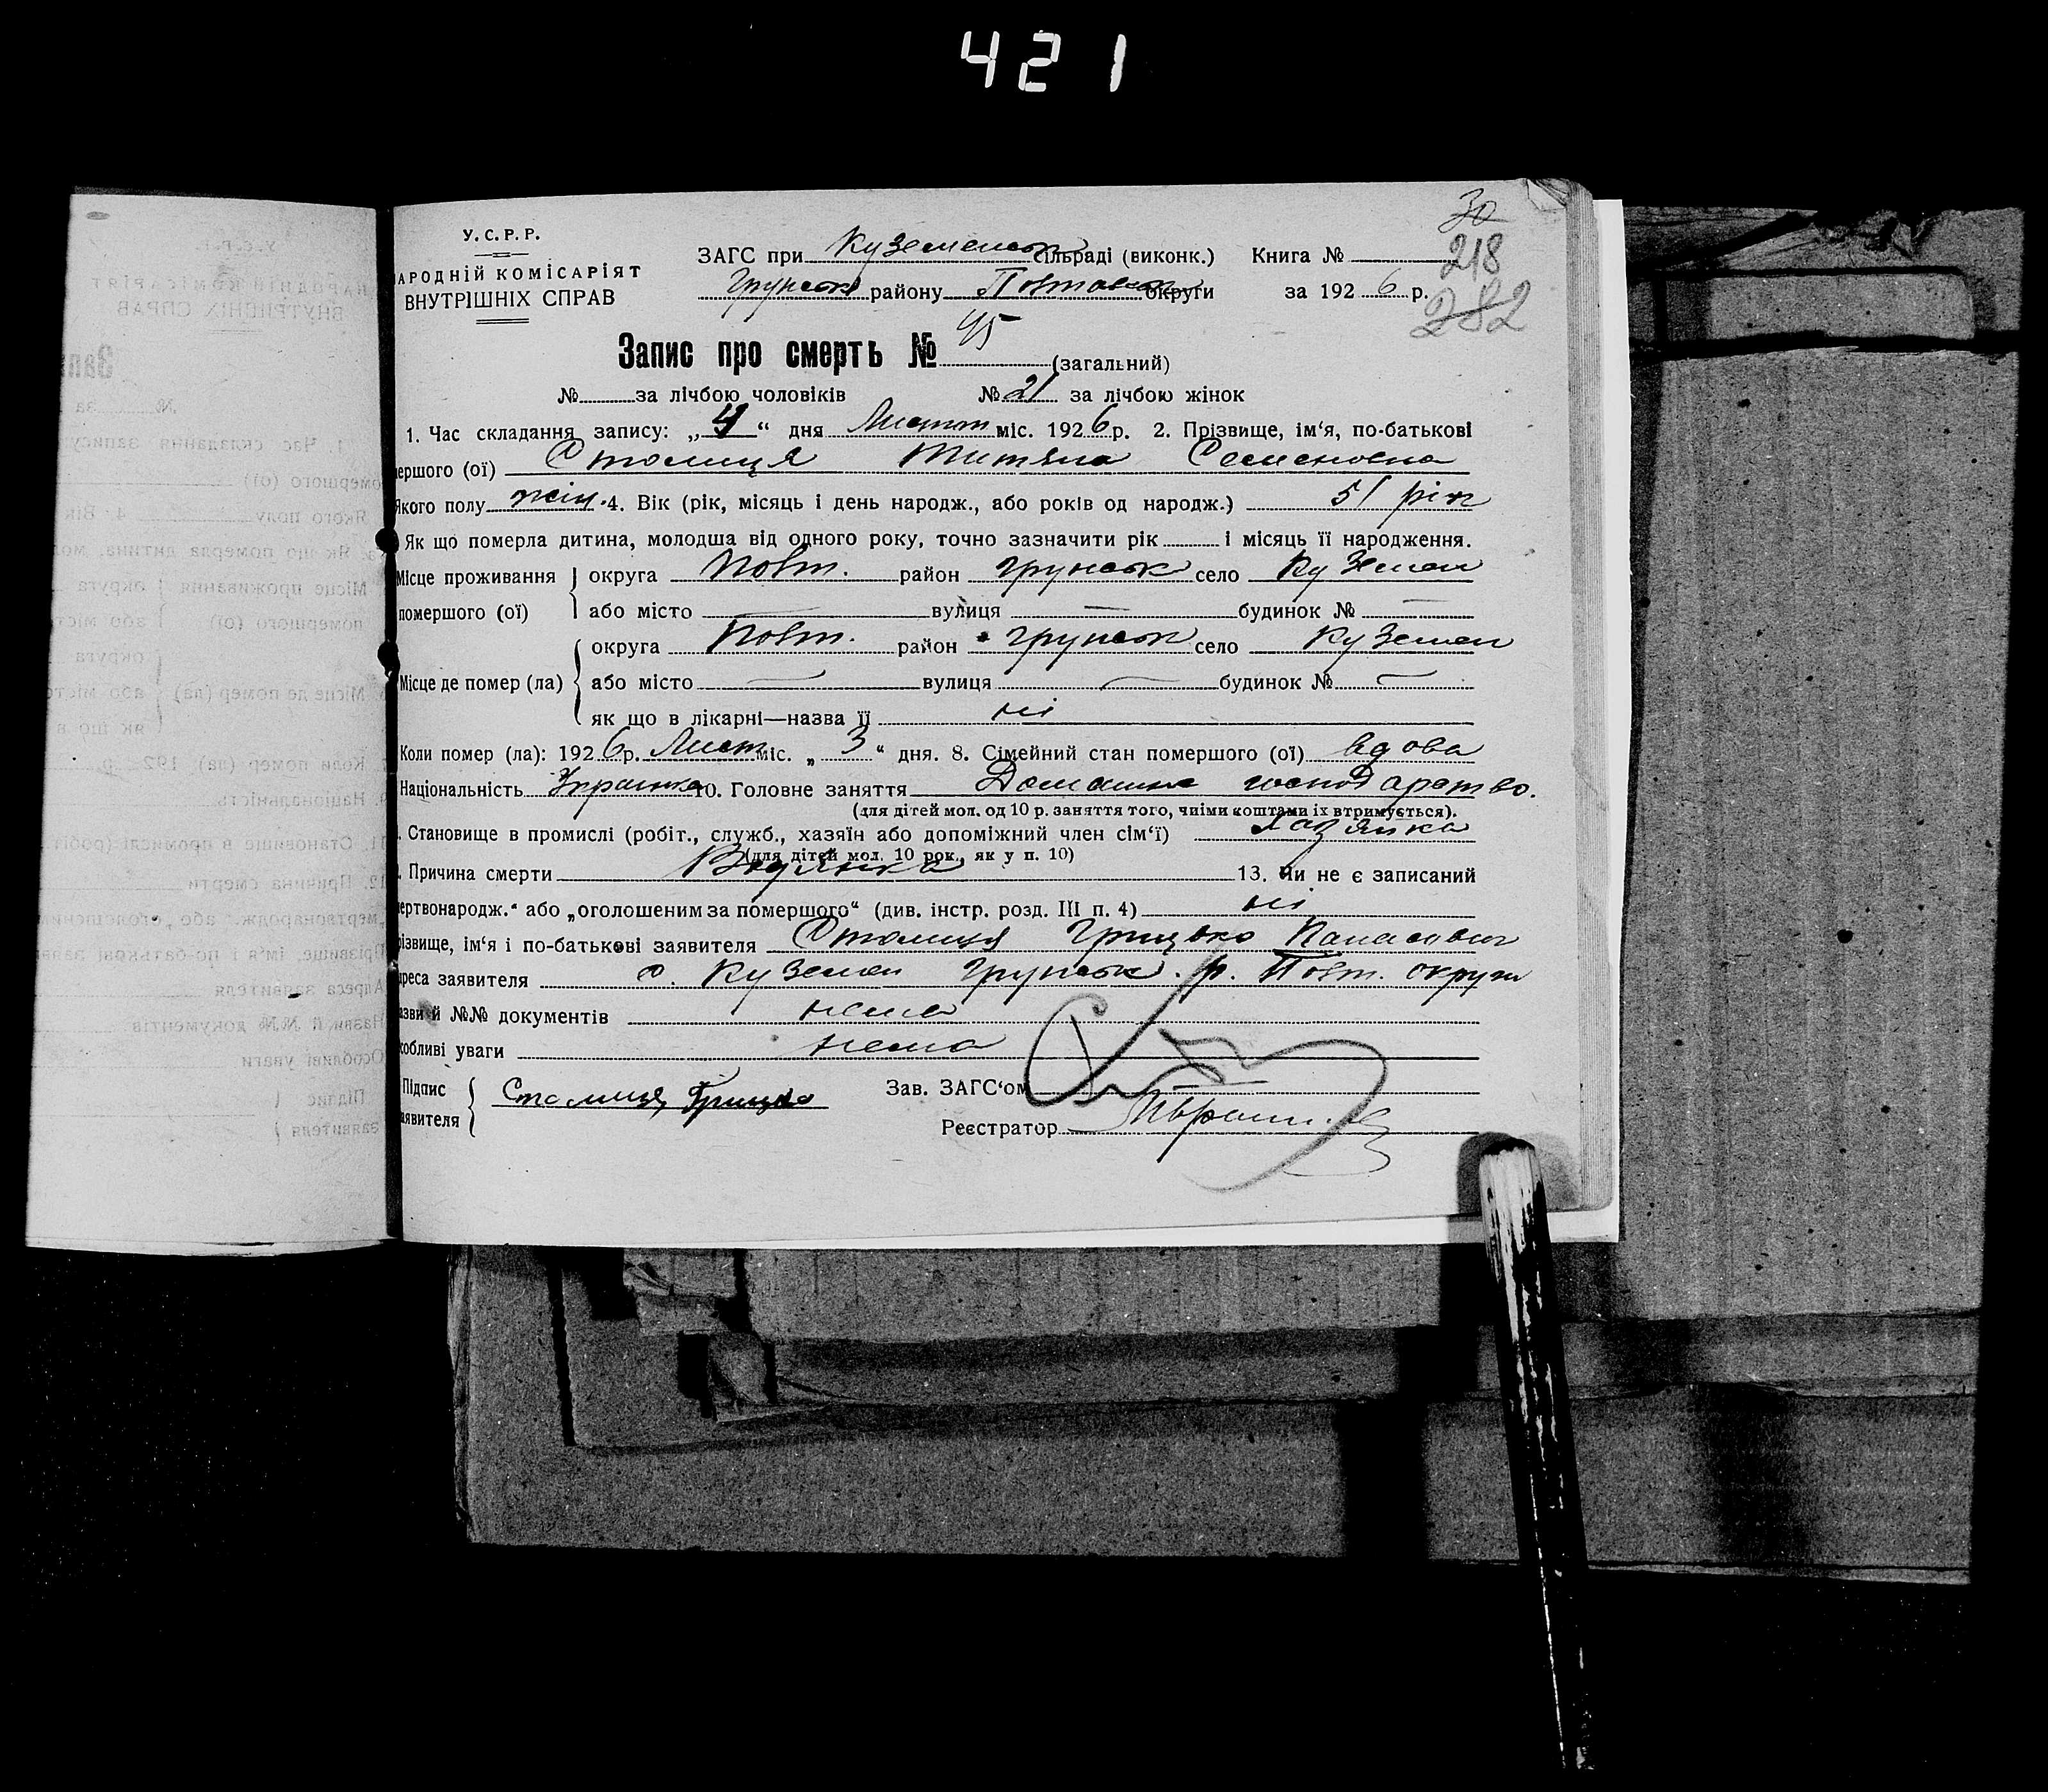 421
30
У.С.Р.Р.
ЗАГС при Куземенськ сільраді (виконк.) Книга № 218
НАРОДНІЙ КОМІСАРІЯТ
ВНУТРІШНІХ СПРАВ
Грунськ району Полтавськ округи за 1926 р. 282
Запис про смерть № 45 (загальний)
№ за лічбою чоловіків № 21 за лічбою жінок
1. Час складання запису: „4“ дня Листп міс. 1926 р. 2. Прізвище, ім‘я, по-батькові
мершого (ої) Столиця Титяна Семеновна
Якого полу жін. 4. Вік (рік, місяць і день народж., або років од народж.) 51 рік
Як що померла дитина, молодша від одного року, точно зазначити рік і місяць її народження.
Місце проживання округа Полт. район Грунськ село Куземен
помершого (ої) або місто — вулиця — будинок № —
округа Полт. район Грунськ село Куземен
Місце де помер (ла) або місто — вулиця — будинок № —
як що в лікарні—назва її ні
Коли помер (ла): 1926 р. Лист міс. „3“ дня. 8. Сімейний стан помершого (ої) вдова
Національність Українка 10. Головне заняття Домашне господарство.
(для дітей мол. од 10 р. заняття того, чиїми коштами їх втримується).
. Становище в промислі (робіт., служб., хазяїн або допоміжний член сім‘ї) хазяйка
(для дітей мол. 10 рок., як у п. 10)
. Причина смерти Водянка 13. Чи не є записаний
ертвонародж.“ або „оголошеним за помершого“ (див. інстр. розд. III п. 4) ні
різвище, ім‘я і по-батькові заявителя Столиця Грицько Панасович
дреса заявителя с. Куземен Грунськ. р. Полт. округи
азви й №№ документів нема
собливі уваги нема
Підпис Столиця Грицько Зав. ЗАГС‘ом
аявителя Реєстратор